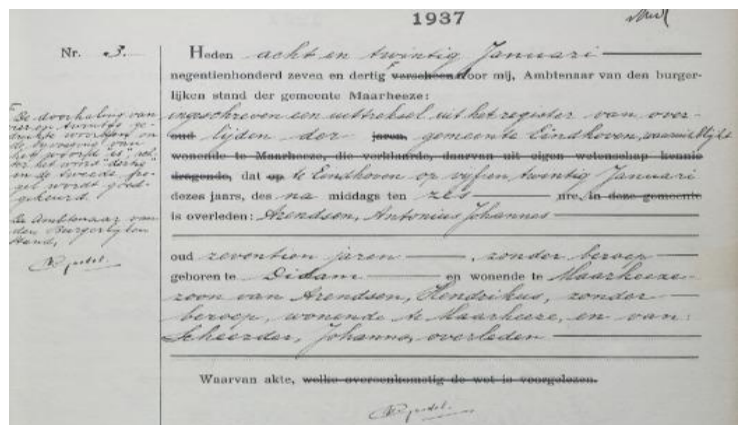 1937
Nr. 3.
Heden acht en twintig Januari
negentienhonderd zeven en dertig verscheen voor mij, Ambtenaar van den burger-
lijken stand der gemeente Maarheeze:
ingeschreven een uittreksel uit het register van over-
oud lijden der jaren, gemeente Eindhoven, waaruit blijkt
wonende te Maarheeze, die verklaarde, daarvan uit eigen wetenschap kennis
dragende, dat op te Eindhoven op vijf en twintig Januari
dezes jaars, des na middags ten zes ure, in deze gemeente
is overleden: Arendsen, Antonius Johannes
oud zeventien jaren, zonder beroep
geboren te Didam en wonende te Maarheeze
zoon van Arendsen, Hendrikus, zonder
beroep, wonende te Maarheeze, en van:
Scheerder, Johanna, overleden
Waarvan akte, welke overeenkomstig de wet is voorgelezen.
De doorhaling van
vier en twintig ge-
drukte woorden en
de bijvoeging van
het woord "is", ach-
ter het woord "dertig"
in de tweede re-
gel wordt goed-
gekeurd.
De Ambtenaar van
den Burgerlijken
Stand,